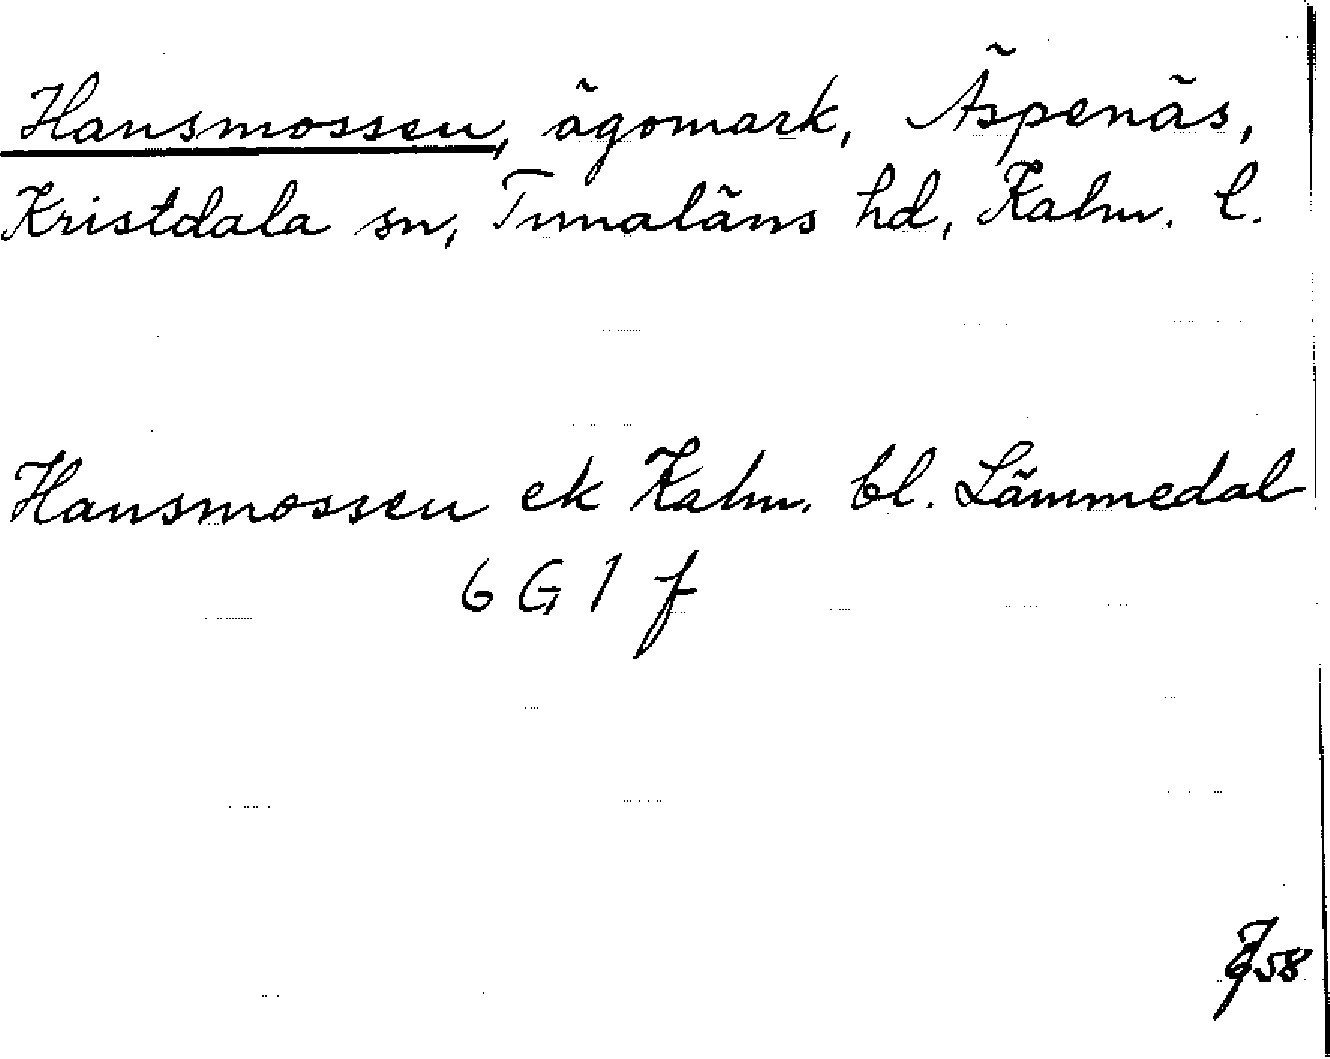 Hansmossen, ägomark, Äspenäs,
Kristdala sn, Tunaläns hd, Kalm. l.
Hansmossen ek Kalm. bl. Lämmedal
6 G 1 f
58